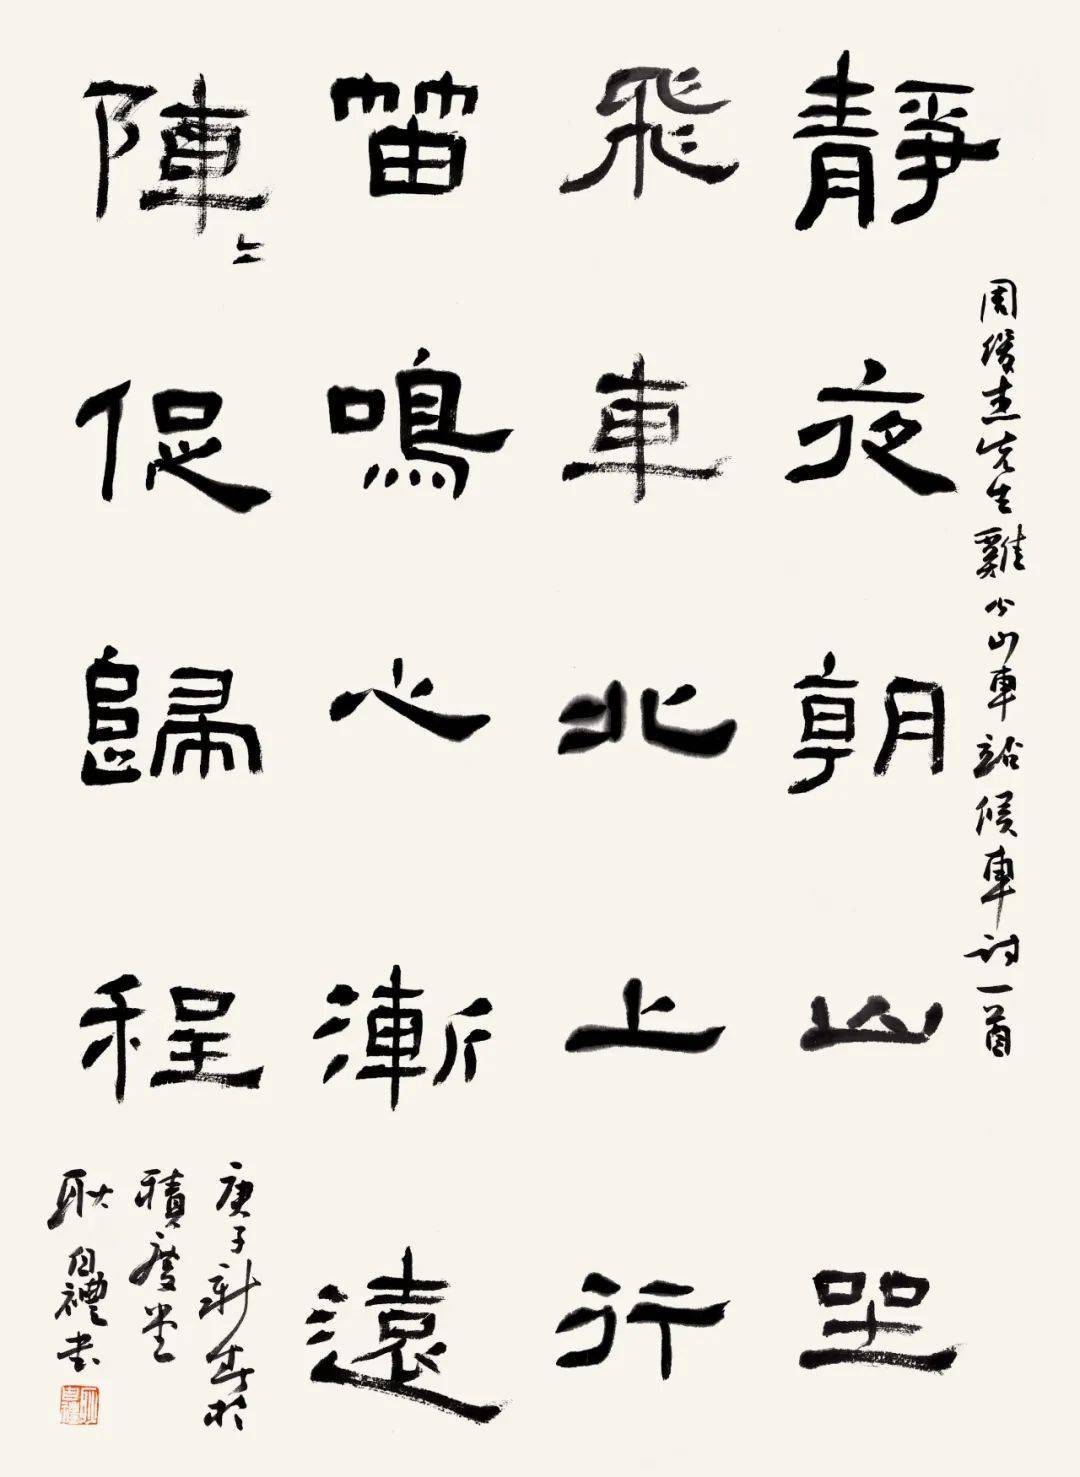 靜夜朝山坐
飛車北上行
笛鳴心漸遠
陣〻促歸程
周俊杰先生雞公山車站候車詩一首
庚子新春於
積慶堂
耿自禮书